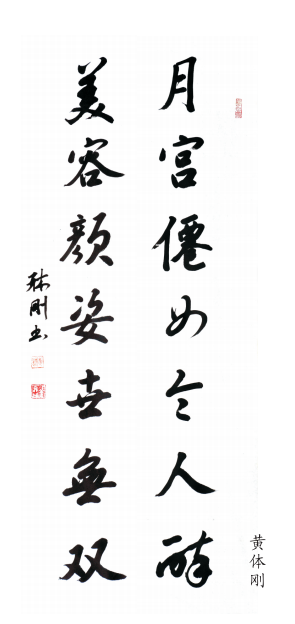 月宫仙女令人醉
美容颜姿世无双
体刚书
黄体刚